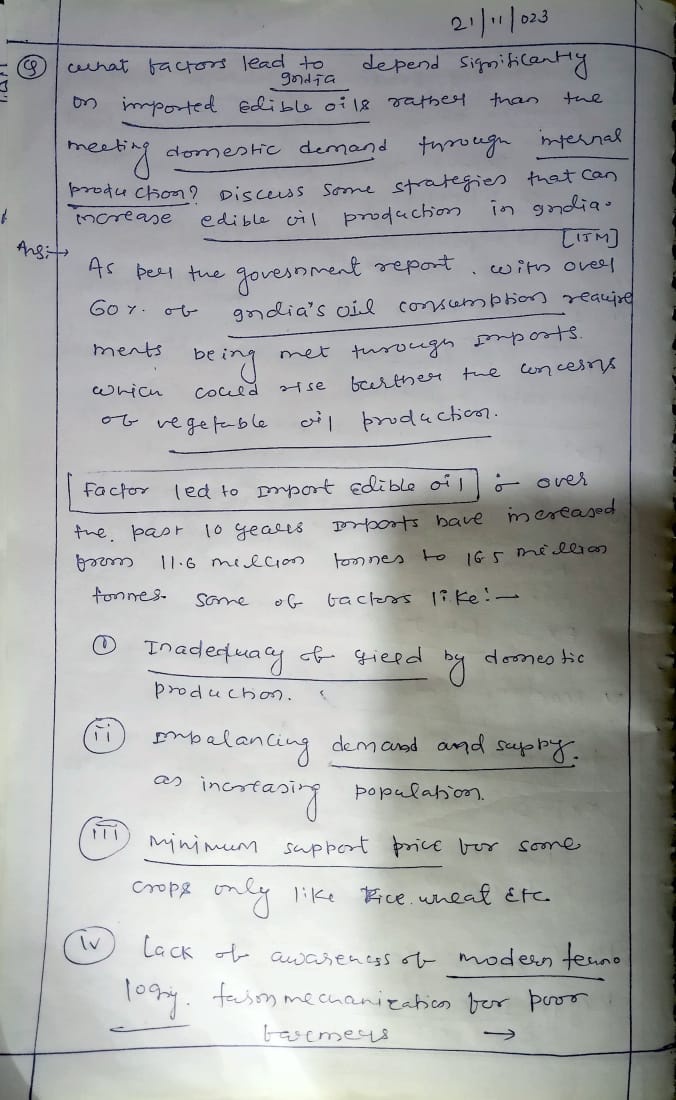 21/11/023
Q what factors lead to India depend significantly
on imported Edible oils rather than the
meeting domestic demand through internal
production? Discuss some strategies that can
increase edible oil production in India.
[15M]
Ans:→
As per the government report, with over
60%. of India's oil consumption require
ments being met through imports.
which could rise further the concerns
of vegetable oil production.
Factor led to Import Edible oil :- over
the past 10 years Imports have increased
from 11.6 million tonnes to 16.5 million
tonnes. Some of factors like:-
(i) Inadequacy of yield by domestic
production.
(ii) Imbalancing demand and supply.
as increasing population.
(iii) Minimum support price for some
crops only like Rice. wheat Etc
(iv) Lack of awareness of modern techno
logy. farm mechanization for poor
farmers →